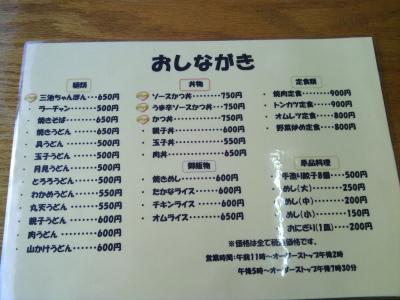 おしながき
麺類
三池ちゃんぽん・・・650円
ラーチャン・・・・・・500円
焼きそば・・・・・・650円
焼きうどん・・・・・650円
具うどん・・・・・・・500円
玉子うどん・・・・・500円
月見うどん・・・・・500円
とろろうどん・・・・500円
わかめうどん・・・・550円
丸天うどん・・・・・550円
親子うどん・・・・・600円
肉うどん・・・・・・・600円
山かけうどん・・・・600円
丼物
ソースかつ丼・・・・・・750円
うま辛ソースかつ丼・・・750円
かつ丼・・・・・・・・・750円
親子丼・・・・・・・・・600円
玉子丼・・・・・・・・・550円
肉丼・・・・・・・・・・650円
御飯物
焼きめし・・・・・・・600円
たかなライス・・・・・600円
チキンライス・・・・・600円
オムライス・・・・・・650円
定食類
焼肉定食・・・・・・・900円
トンカツ定食・・・・・900円
オムレツ定食・・・・・800円
野菜炒め定食・・・・・800円
単品料理
手造り餃子8個・・・・500円
めし(大)・・・・・・250円
めし(中)・・・・・・200円
めし(小)・・・・・・150円
おにぎり(1皿)・・・200円
※価格は全て税込価格です。
営業時間:午前11時～オーダーストップ午後2時
午後5時～オーダーストップ午後7時30分